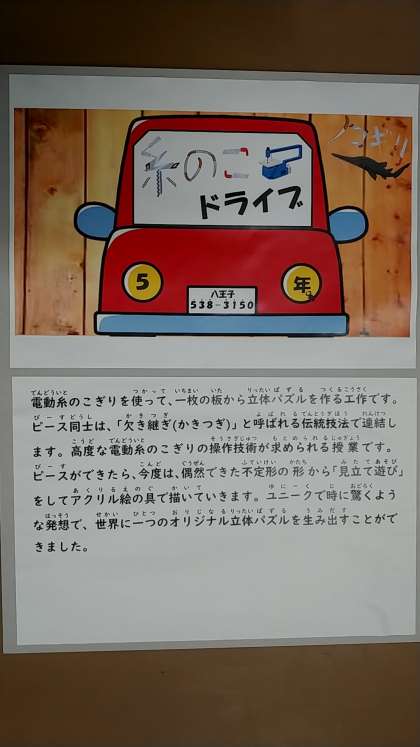 糸のこ
ドライブ
ノコギリ
5
年
八王子
538-3150
電動糸のこぎりを使って、一枚の板から立体パズルを作る工作です。
ピース同士は、「欠き継ぎ(かきつぎ)」と呼ばれる伝統技法で連結し
ます。高度な電動糸のこぎりの操作技術が求められる授業です。
ピースができたら、今度は、偶然できた不定形の形から「見立て遊び」
をしてアクリル絵の具で描いていきます。ユニークで時に驚くよう
な発想で、世界に一つのオリジナル立体パズルを生み出すことがで
きました。